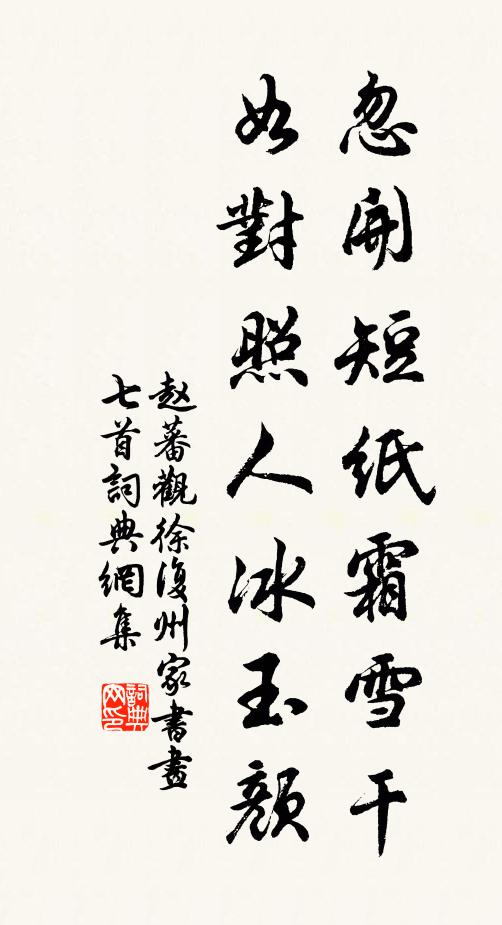 忽開短紙霜雪干
如對照人冰玉顏
赵蕃觀徐復州家書畫
七首詞典網集
詞典网印